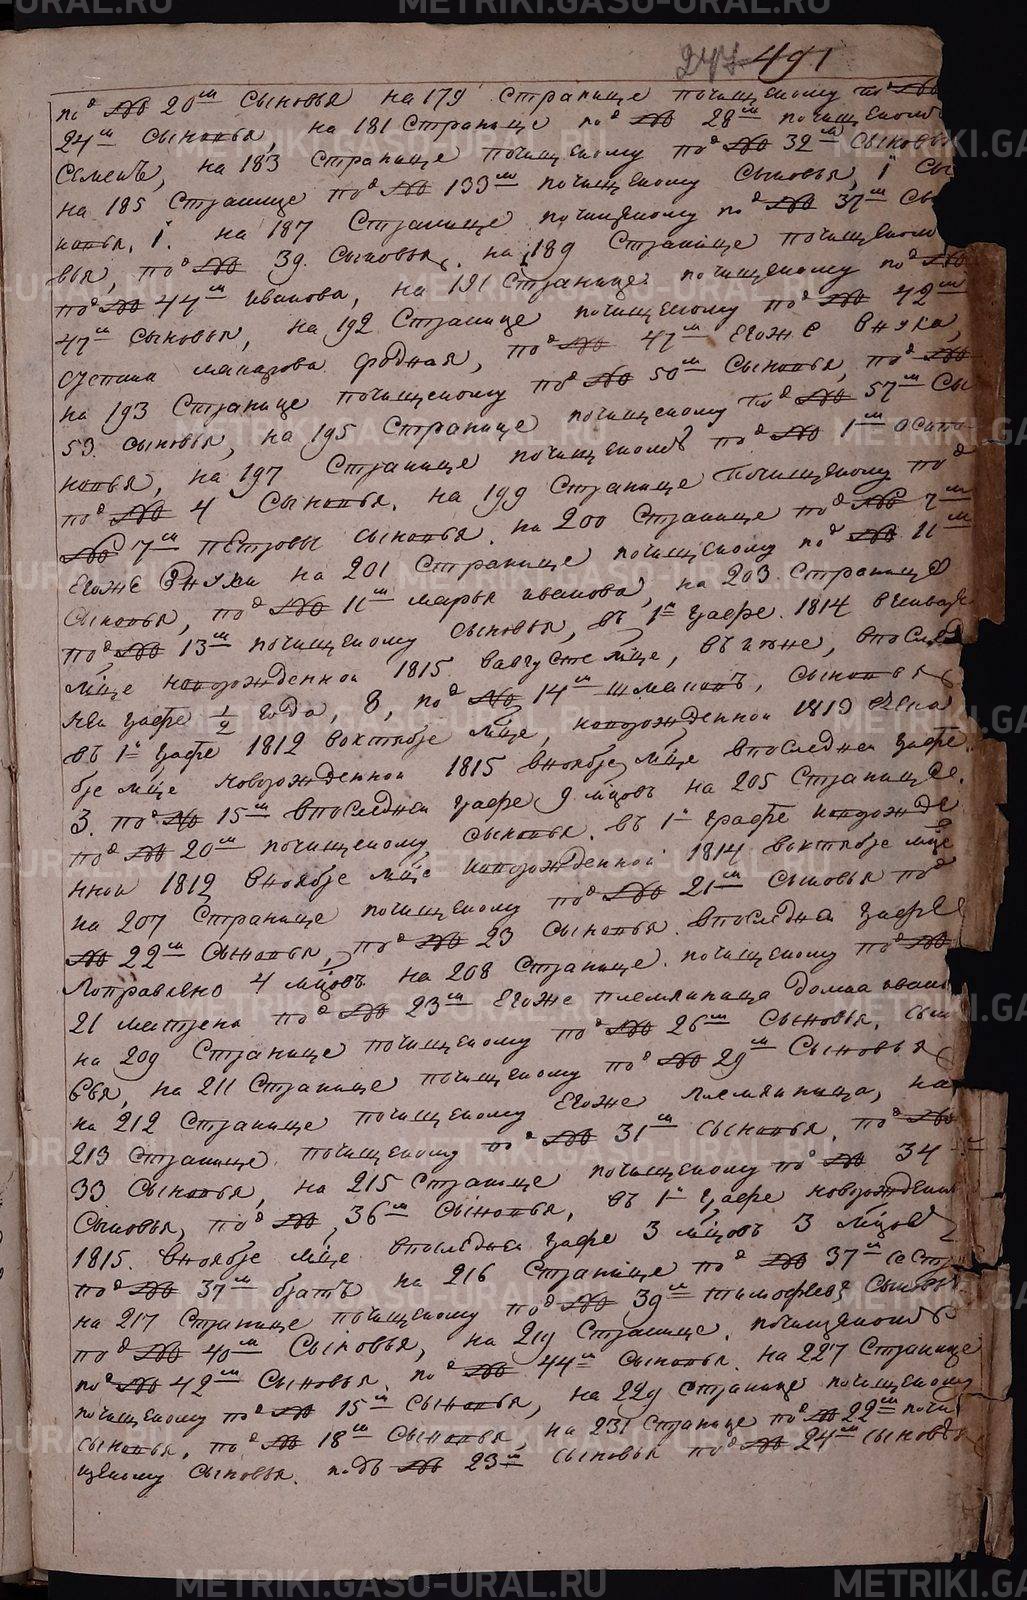 247 491
под № 20м сыновья на 179 странице почищеному под №
24м сыновья, на 181 странице под № 28м почищеному
Семенъ, на 183 странице почищеному под № 32м сыновья
на 185 странице под № 133м почищеному сыновья, i сы
новья. i. на 187 странице почищеному под № 37м сы
вья, под № 39. сыновья. на 189 странице почищеном
под № 44м иванова, на 191 странице почищеному под №
47м сыновья, на 192 странице почищеному под № 42м
степана макарова родная, под № 47м егоже внука,
на 193 странице почищеному под № 50м сыновья, под №
53. сыновья, на 195 странице почищеному под № 57м сы
новья, на 197 странице почищеному под № 1м осипа
под № 4 сыновья. на 199 странице почищеному под
№ 7м петровы сыновья. на 200 странице под № 7м
егоже внуки на 201 странице почищеному под № 11м
сыновья, под № 11м марья иванова, на 203 странице
под № 13м почищеному сыновья, въ 1й графе. 1814 в генваре
мце новорожденной 1815 в августе мце, въ июне, в послед
ней графе ½ года, 8, под № 14м сыновья
въ 1й графе 1812 в октябре мце, новорожденной 1813 дека
бре мце новорожденной 1815 в ноябре мце в последней графе
3. под № 15м в последней графе 9 мцовъ на 205 странице.
под № 20м почищеному сыновья. въ 1й графе новорожде
нной 1812 в ноябре мце новорожденной 1814 в октябре мце
на 207 странице почищеному под № 21м сыновья под
№ 22м сыновья, под № 23 сыновья. в последней графе
поправлено 4 мцовъ на 208 странице. почищеному под №
21 матрена под № 23м егоже племянница домна ивано
на 209 странице почищеному под № 26м сыновья, сын
овья, на 211 странице почищеному под № 29м сыновья
на 212 странице почищеному егоже племянница, на
213 странице почищеному под № 31м сыновья. под №
33 сыновья, на 215 странице почищеному под № 34
сыновья, под № 36м сыновья, въ 1й графе новорожденной
1815. в ноябре мце в последней графе 3 мцовъ 3 мцовъ
под № 37м братъ на 216 странице под № 37м сест
на 217 странице почищеному под № 39м тимофеевъ сыновья
под № 40м сыновья, на 219 странице. почищеному
под № 42м сыновья под № 44м сыновья. на 227 странице
почищеному под № 15м сыновья, на 229 странице почищеному
сыновья, под № 18м сыновья, на 231 странице под № 22м почи
щеному сыновья. подъ № 23м сыновья под № 24м сыновья
METRIKI.GASO-URAL.RU